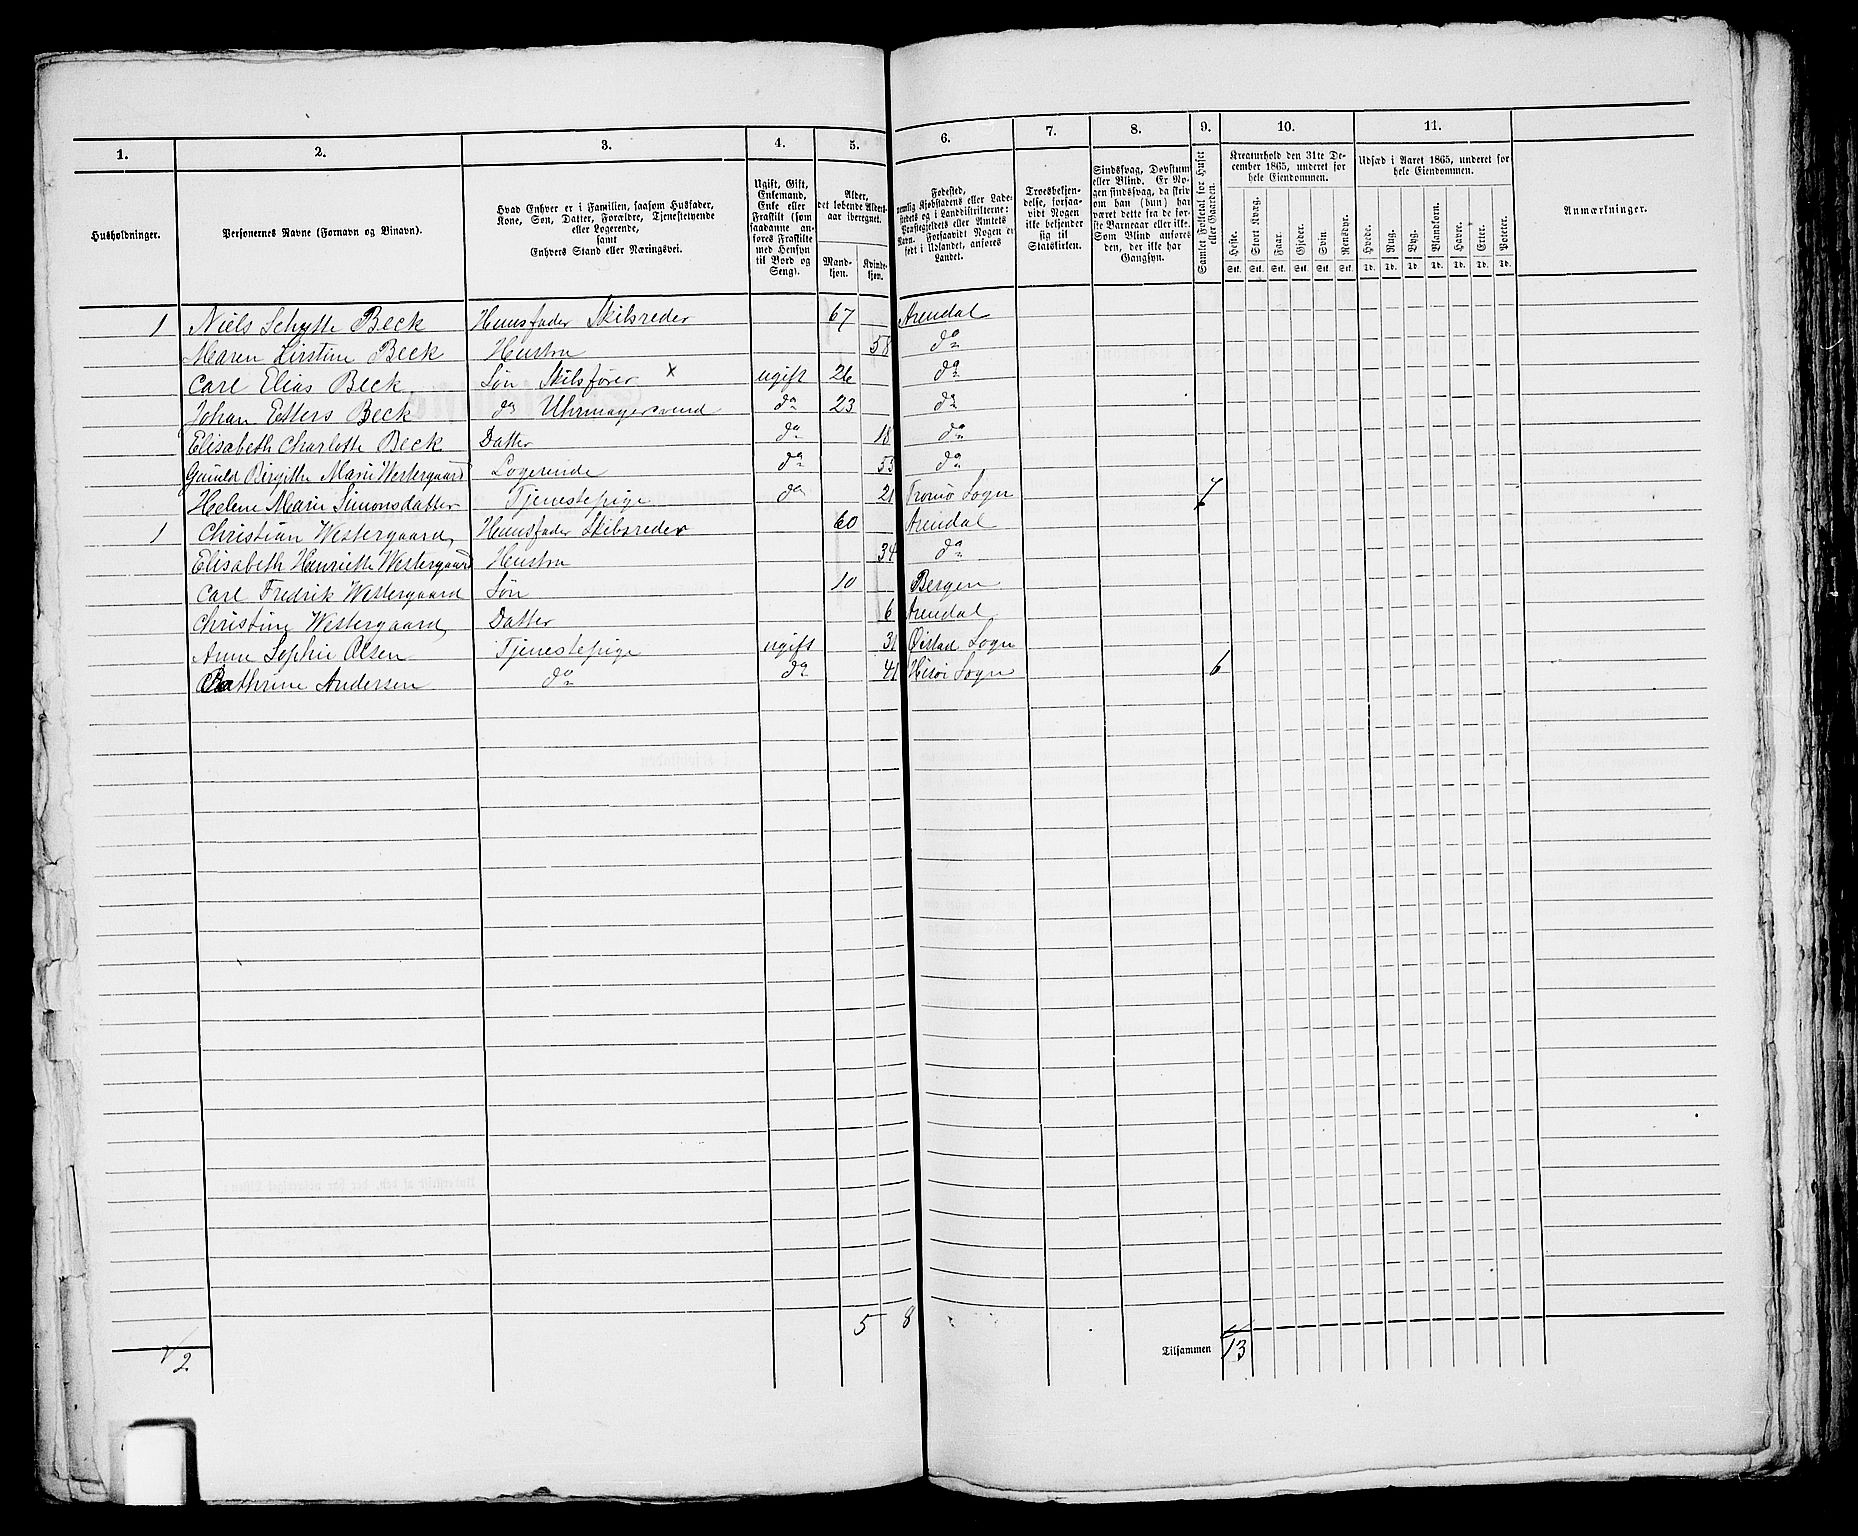 1. 2. 3. 4. 5. 6. 7. 8. 9. 10. 11.
Husholdninger.
Personernes Navne (Fornavn og Binavn).
Hvad Enhver er i Familien, saasom Husfader,
Kone, Søn, Datter, Forældre, Tjenestetyende
eller Logerende,
samt
Enhvers Stand eller Næringsvei.
Ugift, Gift,
Enkemand,
Enke eller
Fraskilt (som
saadanne an-
føres Fraskilte
med Hensyn
til Bord og
Seng).
Alder,
det løbende Alders-
aar iberegnet.
Mand-
kjøn.
Kvinde-
kjøn.
Fødested,
nemlig Kjøbstadens eller Lade-
stedets og i Landdistrikterne:
Præstegjeldets eller Amtets
Navn. Forsaavidt Nogen er
født i Udlandet, anføres
Landet.
Troesbekjen-
delse, forsaa-
vidt Nogen
ikke bekjender
sig til
Statskirken.
Sindssvag, Døvstum
eller Blind. Er No-
gen sindssvag, da skriv
om han (hun) har
været dette fra de før-
ste Barneaar eller ikke.
Som Blind anføres
den, der ikke har
Gangsyn.
Samlet Folketal for Huset
eller Gaarden.
Kreaturhold den 31te De-
cember 1865, underet for
hele Eiendommen.
Heste. Stort Kvæg. Faar. Gjeder. Svin. Rensdyr.
Stk. Stk. Stk. Stk. Stk. Stk.
Udsæd i Aaret 1865, underet for
hele Eiendommen.
Hvede. Rug. Byg. Blandkorn. Havre. Erter. Poteter.
Td. Td. Td. Td. Td. Td. Td.
Anmærkninger.
1 Niels Schytte Beck Huusfader Skibsreder 67 Arendal
Maren Kirstine Beck Hustru 58 do
Carl Elias Beck Søn Skibsfører x ugift 26 do
Johan Ehlers Beck do Uhrmagersvend do 23 do
Elisabeth Charlotte Beck Datter do 18 do
Gunild Birgitte Marie Westergaard Logerende do 55 do
Helene Marie Simonsdatter Tjenestepige do 21 Tromø Sogn 7
1 Christian Westergaard Huusfader Skibsreder 60 Arendal
Elisabeth Henriette Westergaard Hustru 34 do
Carl Fredrik Westergaard Søn 10 Bergen
Christine Westergaard Datter 6 Arendal
Anne Sophie Olsen Tjenestepige ugift 31 Øistad Sogn
Cathrine Andersen do do 41 Hisøi Sogn 6
5 8
2 Tilsammen 13